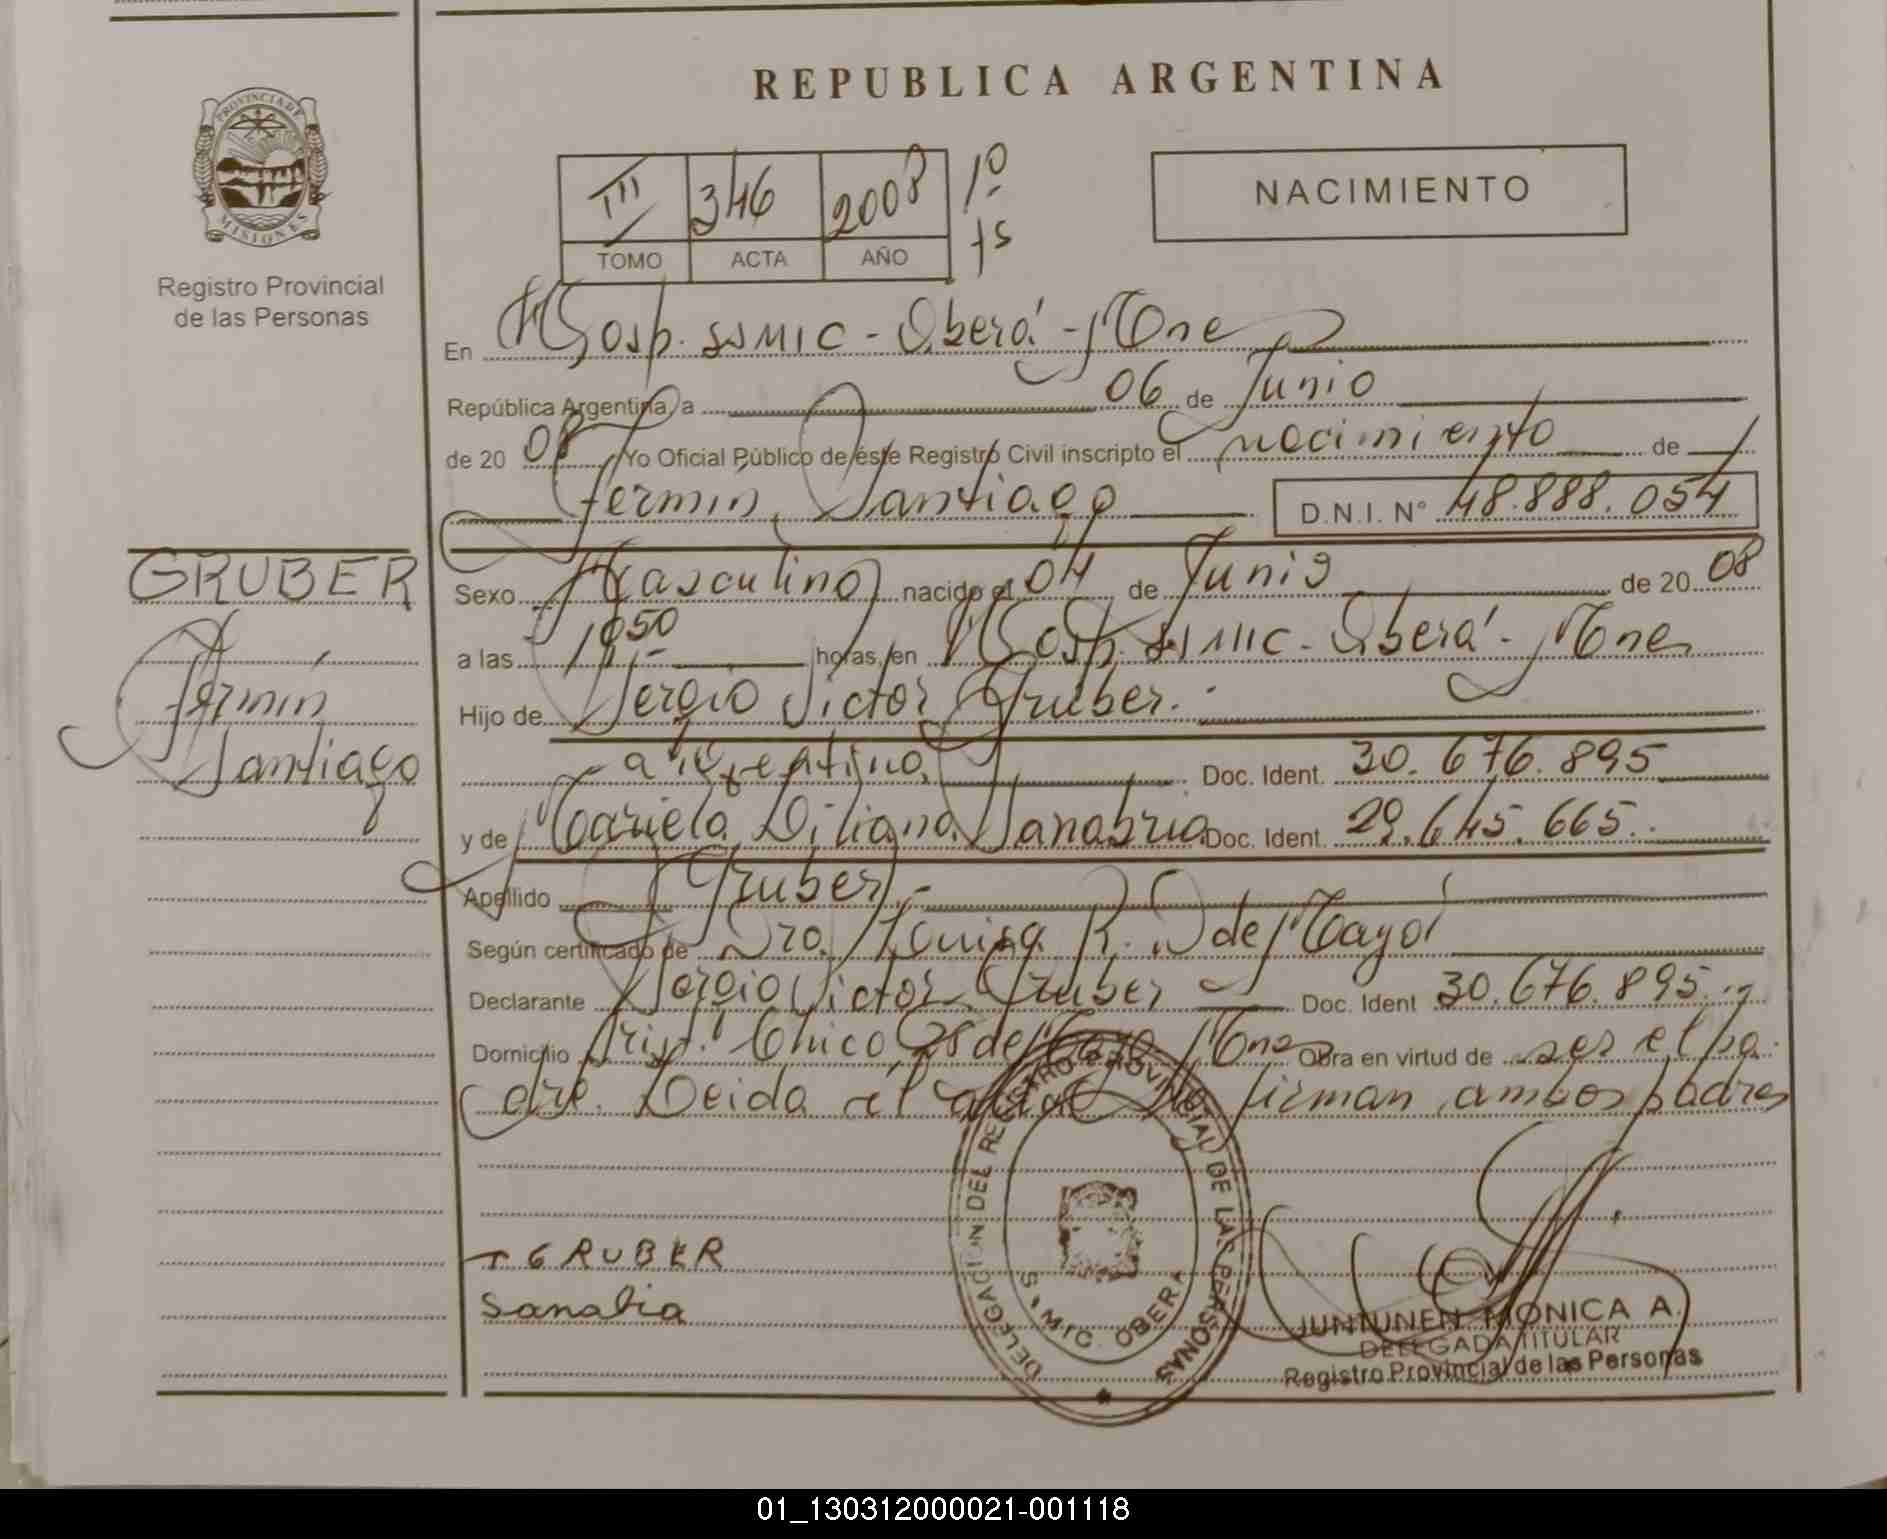 REPUBLICA ARGENTINA
PROVINCIA DE
MISIONES
Registro Provincial
de las Personas
III 346 2008 1º
TOMO ACTA AÑO
NACIMIENTO
En Hosp. SSMIC - Oberá - Mnes
República Argentina, a 06 de Junio
de 2008 Yo Oficial Público de éste Registro Civil inscripto el nacimiento de
Fermín Santiago D.N.I. Nº 48.888.054
GRUBER
Fermín
Santiago
Sexo Masculino nacido el 04 de Junio de 2008
a las horas, en Hosp. SSMIC - Oberá - Mnes
Hijo de Sergio Victor Gruber.
argentino. Doc. Ident. 30.676.895
y de Mariela Liliana Sanabria Doc. Ident. 29.645.665.
Apellido Gruber.-
Según certificado de Dra. R. D de Mayol
Declarante Sergio Victor Gruber Doc. Ident 30.676.895.
Domicilio Chico Mnes Obra en virtud de ser el pa-
dre. Leida el acta la firman ambos padres
GRUBER
Sanabria
DELEGACION DEL REGISTRO PROVINCIAL DE LAS PERSONAS
S.MIC. OBERA
JUNTUNEN MONICA A.
DELEGADA TITULAR
Registro Provincial de las Personas
01_130312000021-001118